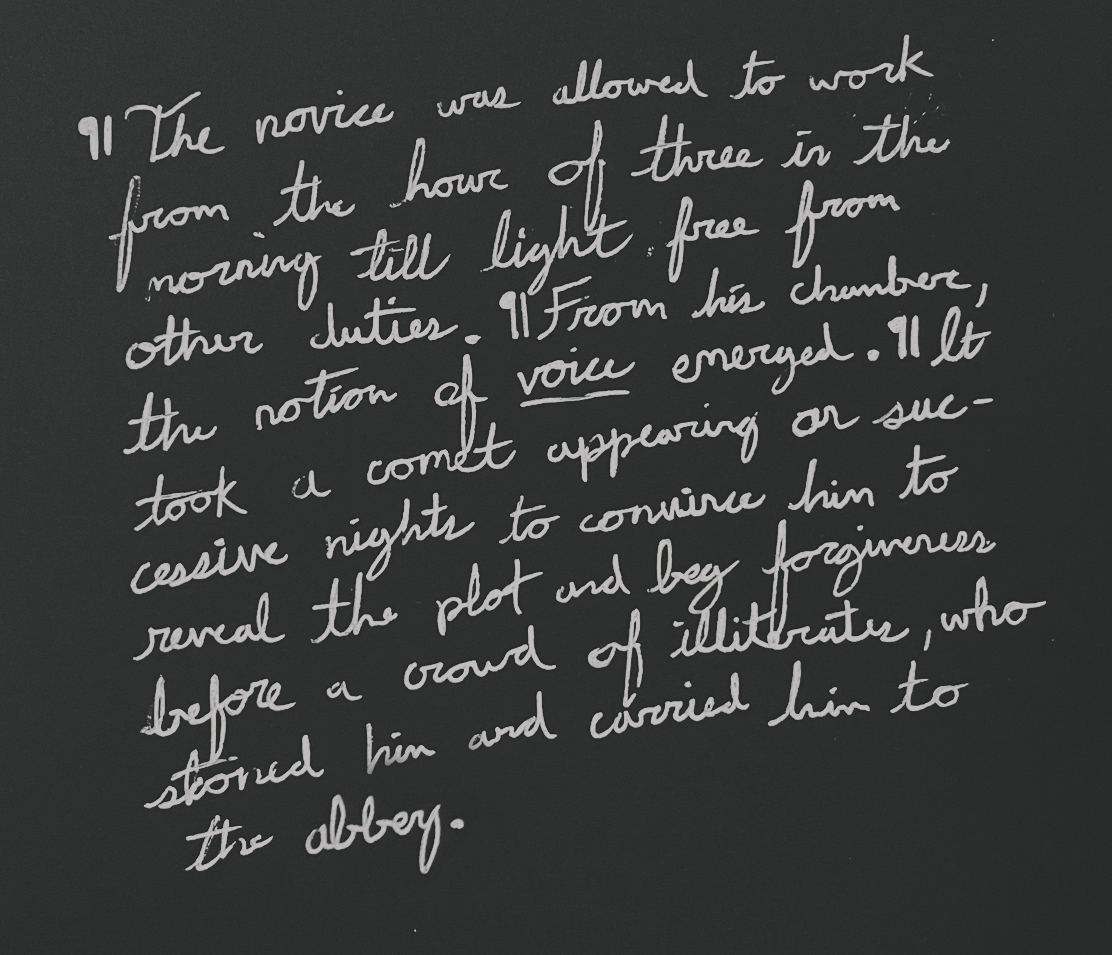 ¶ The novice was allowed to work
from the hour of three in the
morning till light free from
other duties. ¶ From his chamber,
the notion of voice emerged. ¶ It
took a comet appearing on suc-
cessive nights to convince him to
reveal the plot and beg forgiveness
before a crowd of illiterates, who
stoned him and carried him to
the abbey.